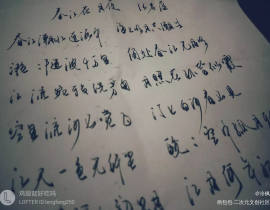 春江花月夜 张若虚
春江潮水连海平 海上明月共潮生
滟滟随波千万里 何处春江无月明
江流宛转绕芳甸 月照花林皆似霰
空里流霜不觉飞 汀上白沙看不见
江天一色无纤尘 皎皎空中孤月
江月何年
鸡腿就好吃吗
LOFTER ID:tangfang250
二次元文创社区